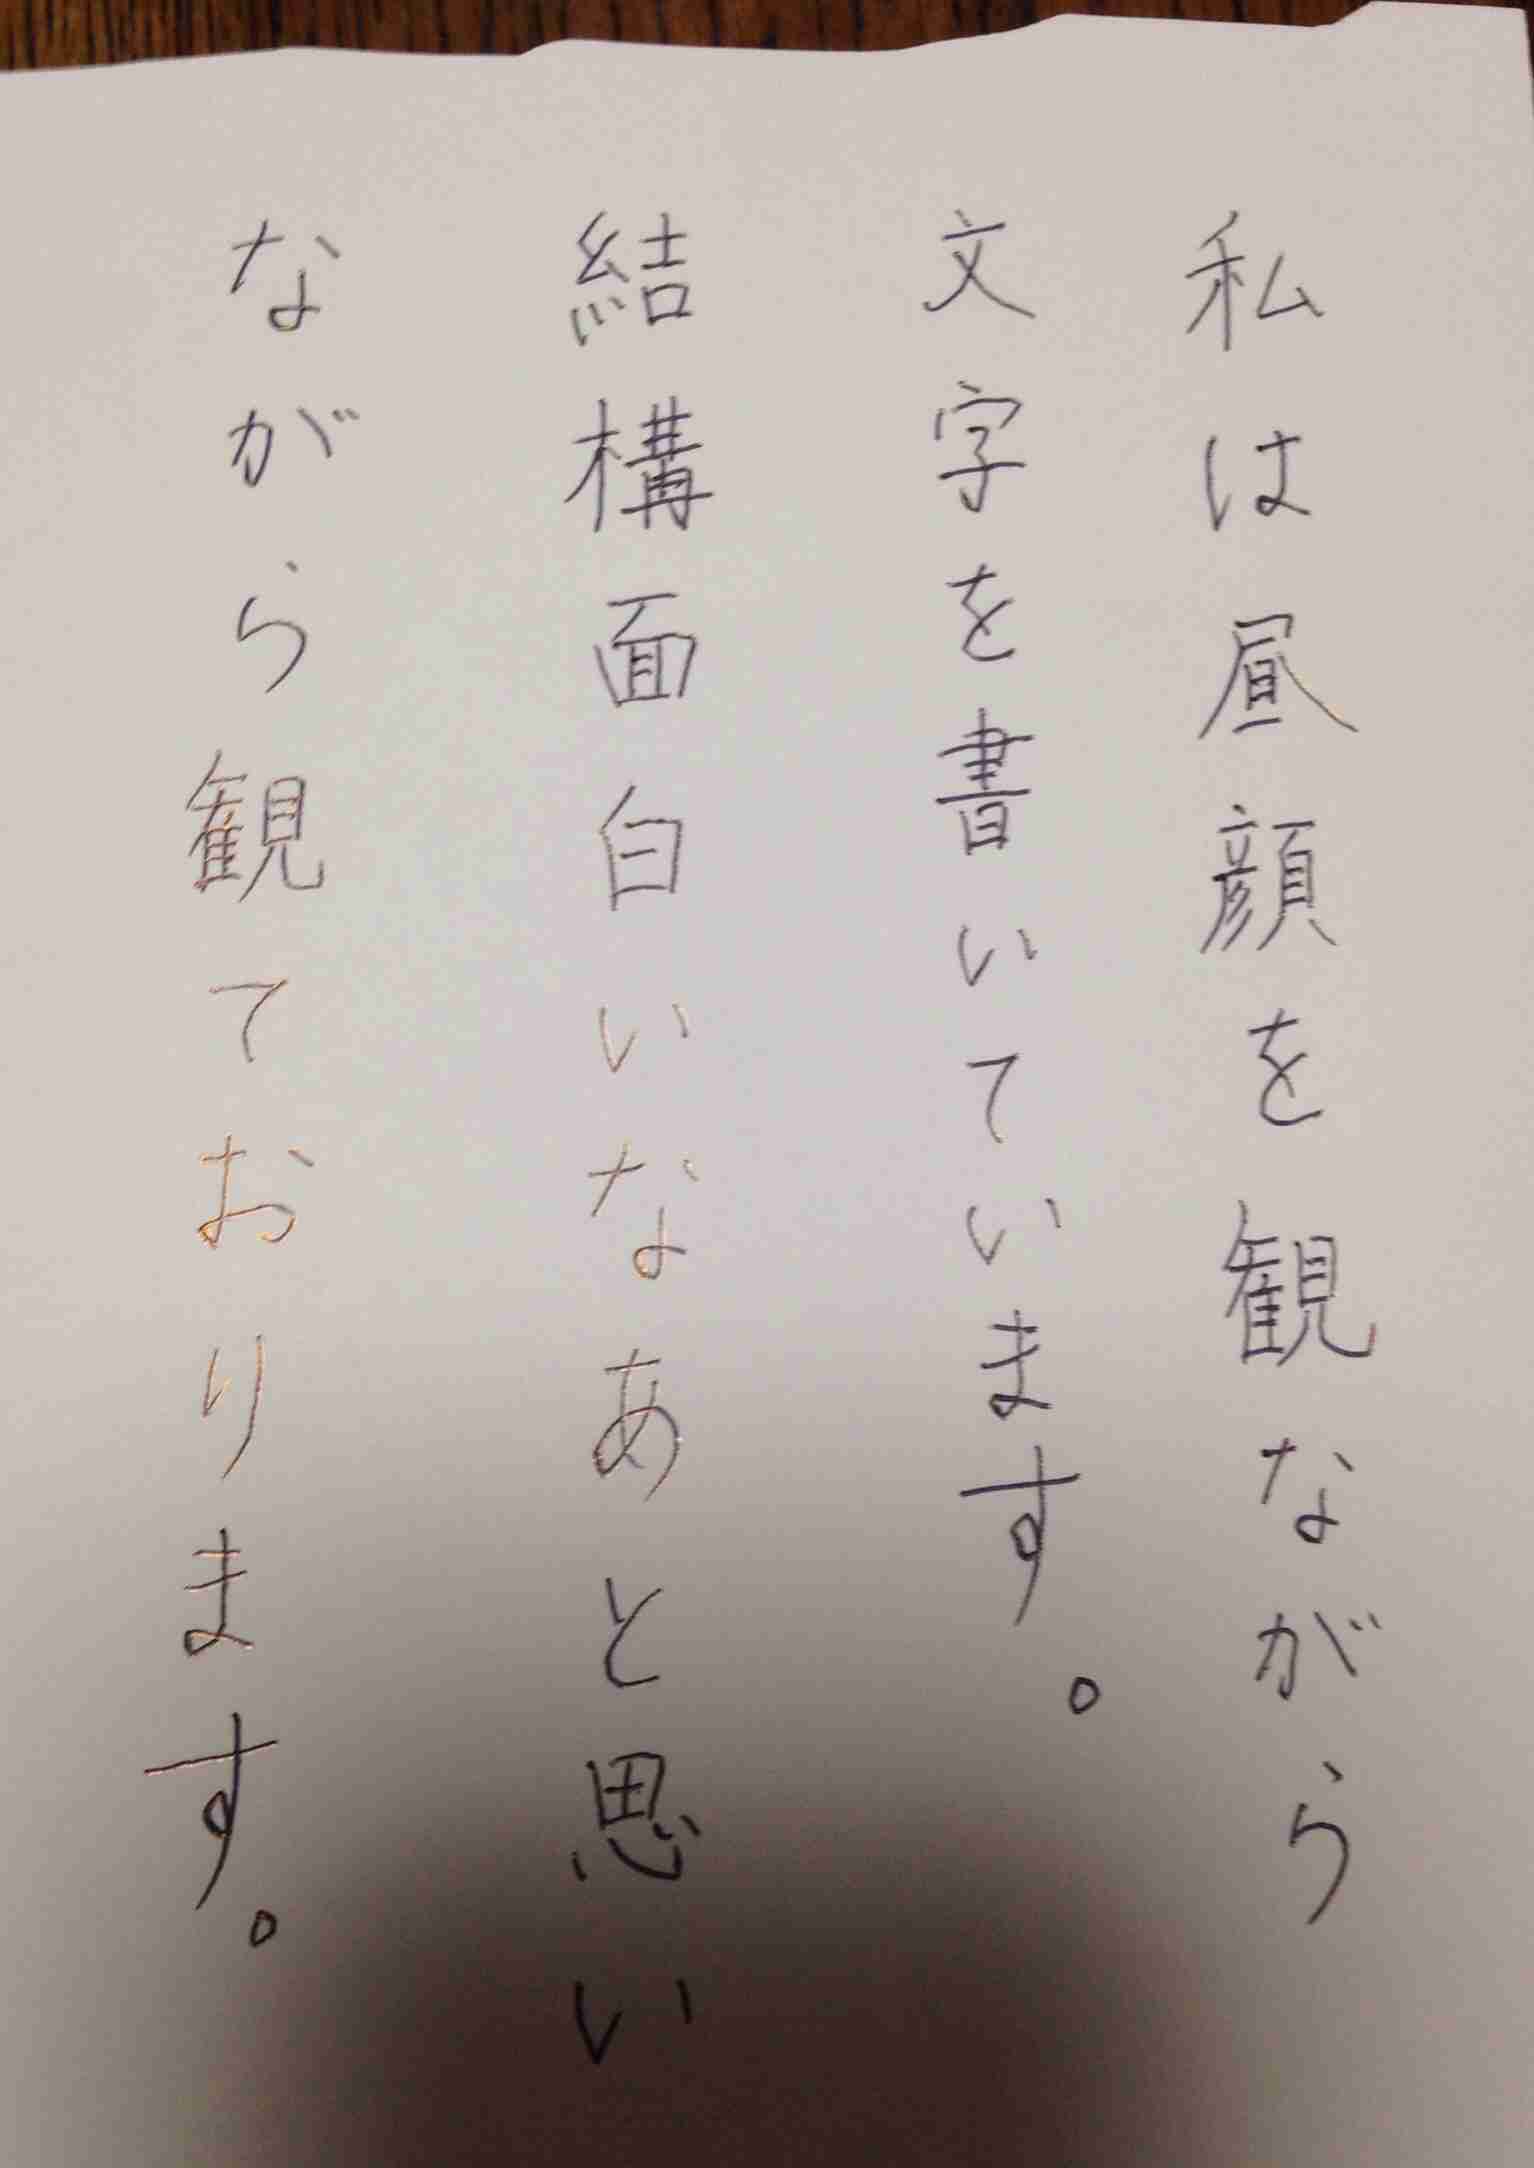 私は昼顔を観ながら
文字を書いています。
結構面白いなあと思い
ながら観ております。